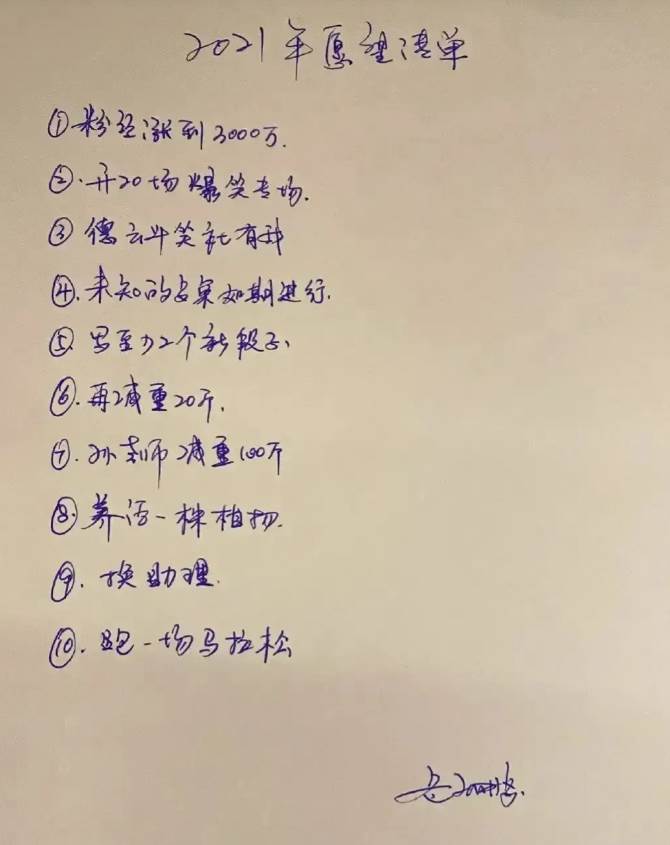 2021年愿望清单
①粉丝涨到3000万.
②.开20场爆笑专场.
③德云斗笑社有我
④.未知的占桌如期进行.
⑤写至少2个新段子.
⑥.再减重20斤.
⑦.孙老师减重100斤
⑧.养活一株植物.
⑨.换助理.
⑩.跑一场马拉松
岳云鹏.